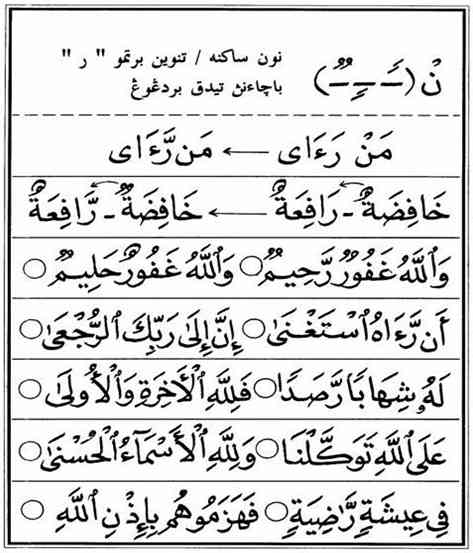 نْ (ـًـ ـٍـ ـٌـ) نون ساكنه / تنوين برتمو " ر "
باچاءنث تيدق بردڠوڠ
مَنْ رَءَاى ← مَن رَّءَاى
خَافِضَةٌ - رَافِعَةٌ ← خَافِضَةٌ - رَّافِعَةٌ
وَٱللَّهُ غَفُورٌ رَّحِيمٌ ○ وَٱللَّهُ غَفُورٌ حَلِيمٌ ○
أَن رَّءَاهُ ٱسْتَغْنَىٰ ○ إِنَّ إِلَىٰ رَبِّكَ ٱلرُّجْعَىٰ ○
لَهُۥ شِهَابًا رَّصَدًا ○ فَلِلَّهِ ٱلْأَخِرَةُ وَٱلْأُولَىٰ ○
عَلَى ٱللَّهِ تَوَكَّلْنَا ○ وَلِلَّهِ ٱلْأَسْمَآءُ ٱلْحُسْنَىٰ ○
فِى عِيشَةٍ رَّاضِيَةٍ ○ فَهَزَمُوهُم بِإِذْنِ ٱللَّهِ ○